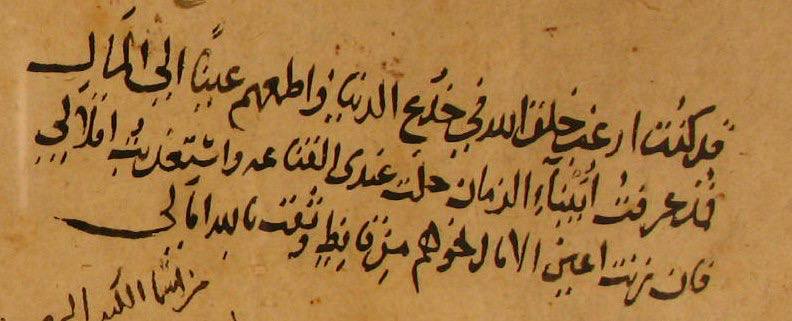 قد كنت ارغب خلق الله في خدع الدنيا واطمعهم عينًا الي المال
فمذ عرفتُ أُبَيْناءِ الزمان حلت عندي القناعه واستعذبتُ اقلالي
فان رنت اعين الامال نحوهم من قانطٍ وثقت بالله امالي